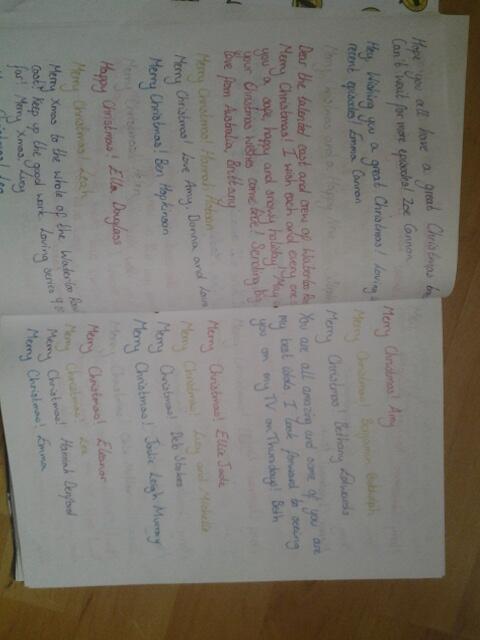 Hope you all have a great Christmas
Can't wait for more episodes! Zoe Cannon
Hey, Wishing you a great Christmas! Loving
recent episodes! Emma Cannon
Dear the talented cast and crew of Waterloo
Merry Christmas! I wish each and every one
you a safe, happy and snowy holiday! May
your Christmas wishes come true! Sending big
love from Australia, Brittany
Merry Christmas! Hannah
Merry Christmas! Love Amy, Donna and
Merry Christmas! Ben Hopkinson
Happy Christmas! Ella Douglass
Merry Christmas! Leah
Merry Xmas to the whole of the Waterloo
cast! Keep up the good work. Loving series 9 so
far! Merry Xmas, Lucy
Merry Christmas! Amy
Merry Christmas! Benjamin
Merry Christmas! Bethany Edwards
You are all amazing and some of you are
my best idols. I look forward to seeing
you on my TV on Thursdays! Beth
Merry Christmas! Ellie Jade
Merry Christmas! Lucy and Michelle
Merry Christmas! Deb Stokes
Merry Christmas! Jodie Leigh Murray
Merry Christmas!
Merry Christmas! Eleanor
Merry Christmas!
Merry Christmas! Hannah
Merry Christmas! Emma